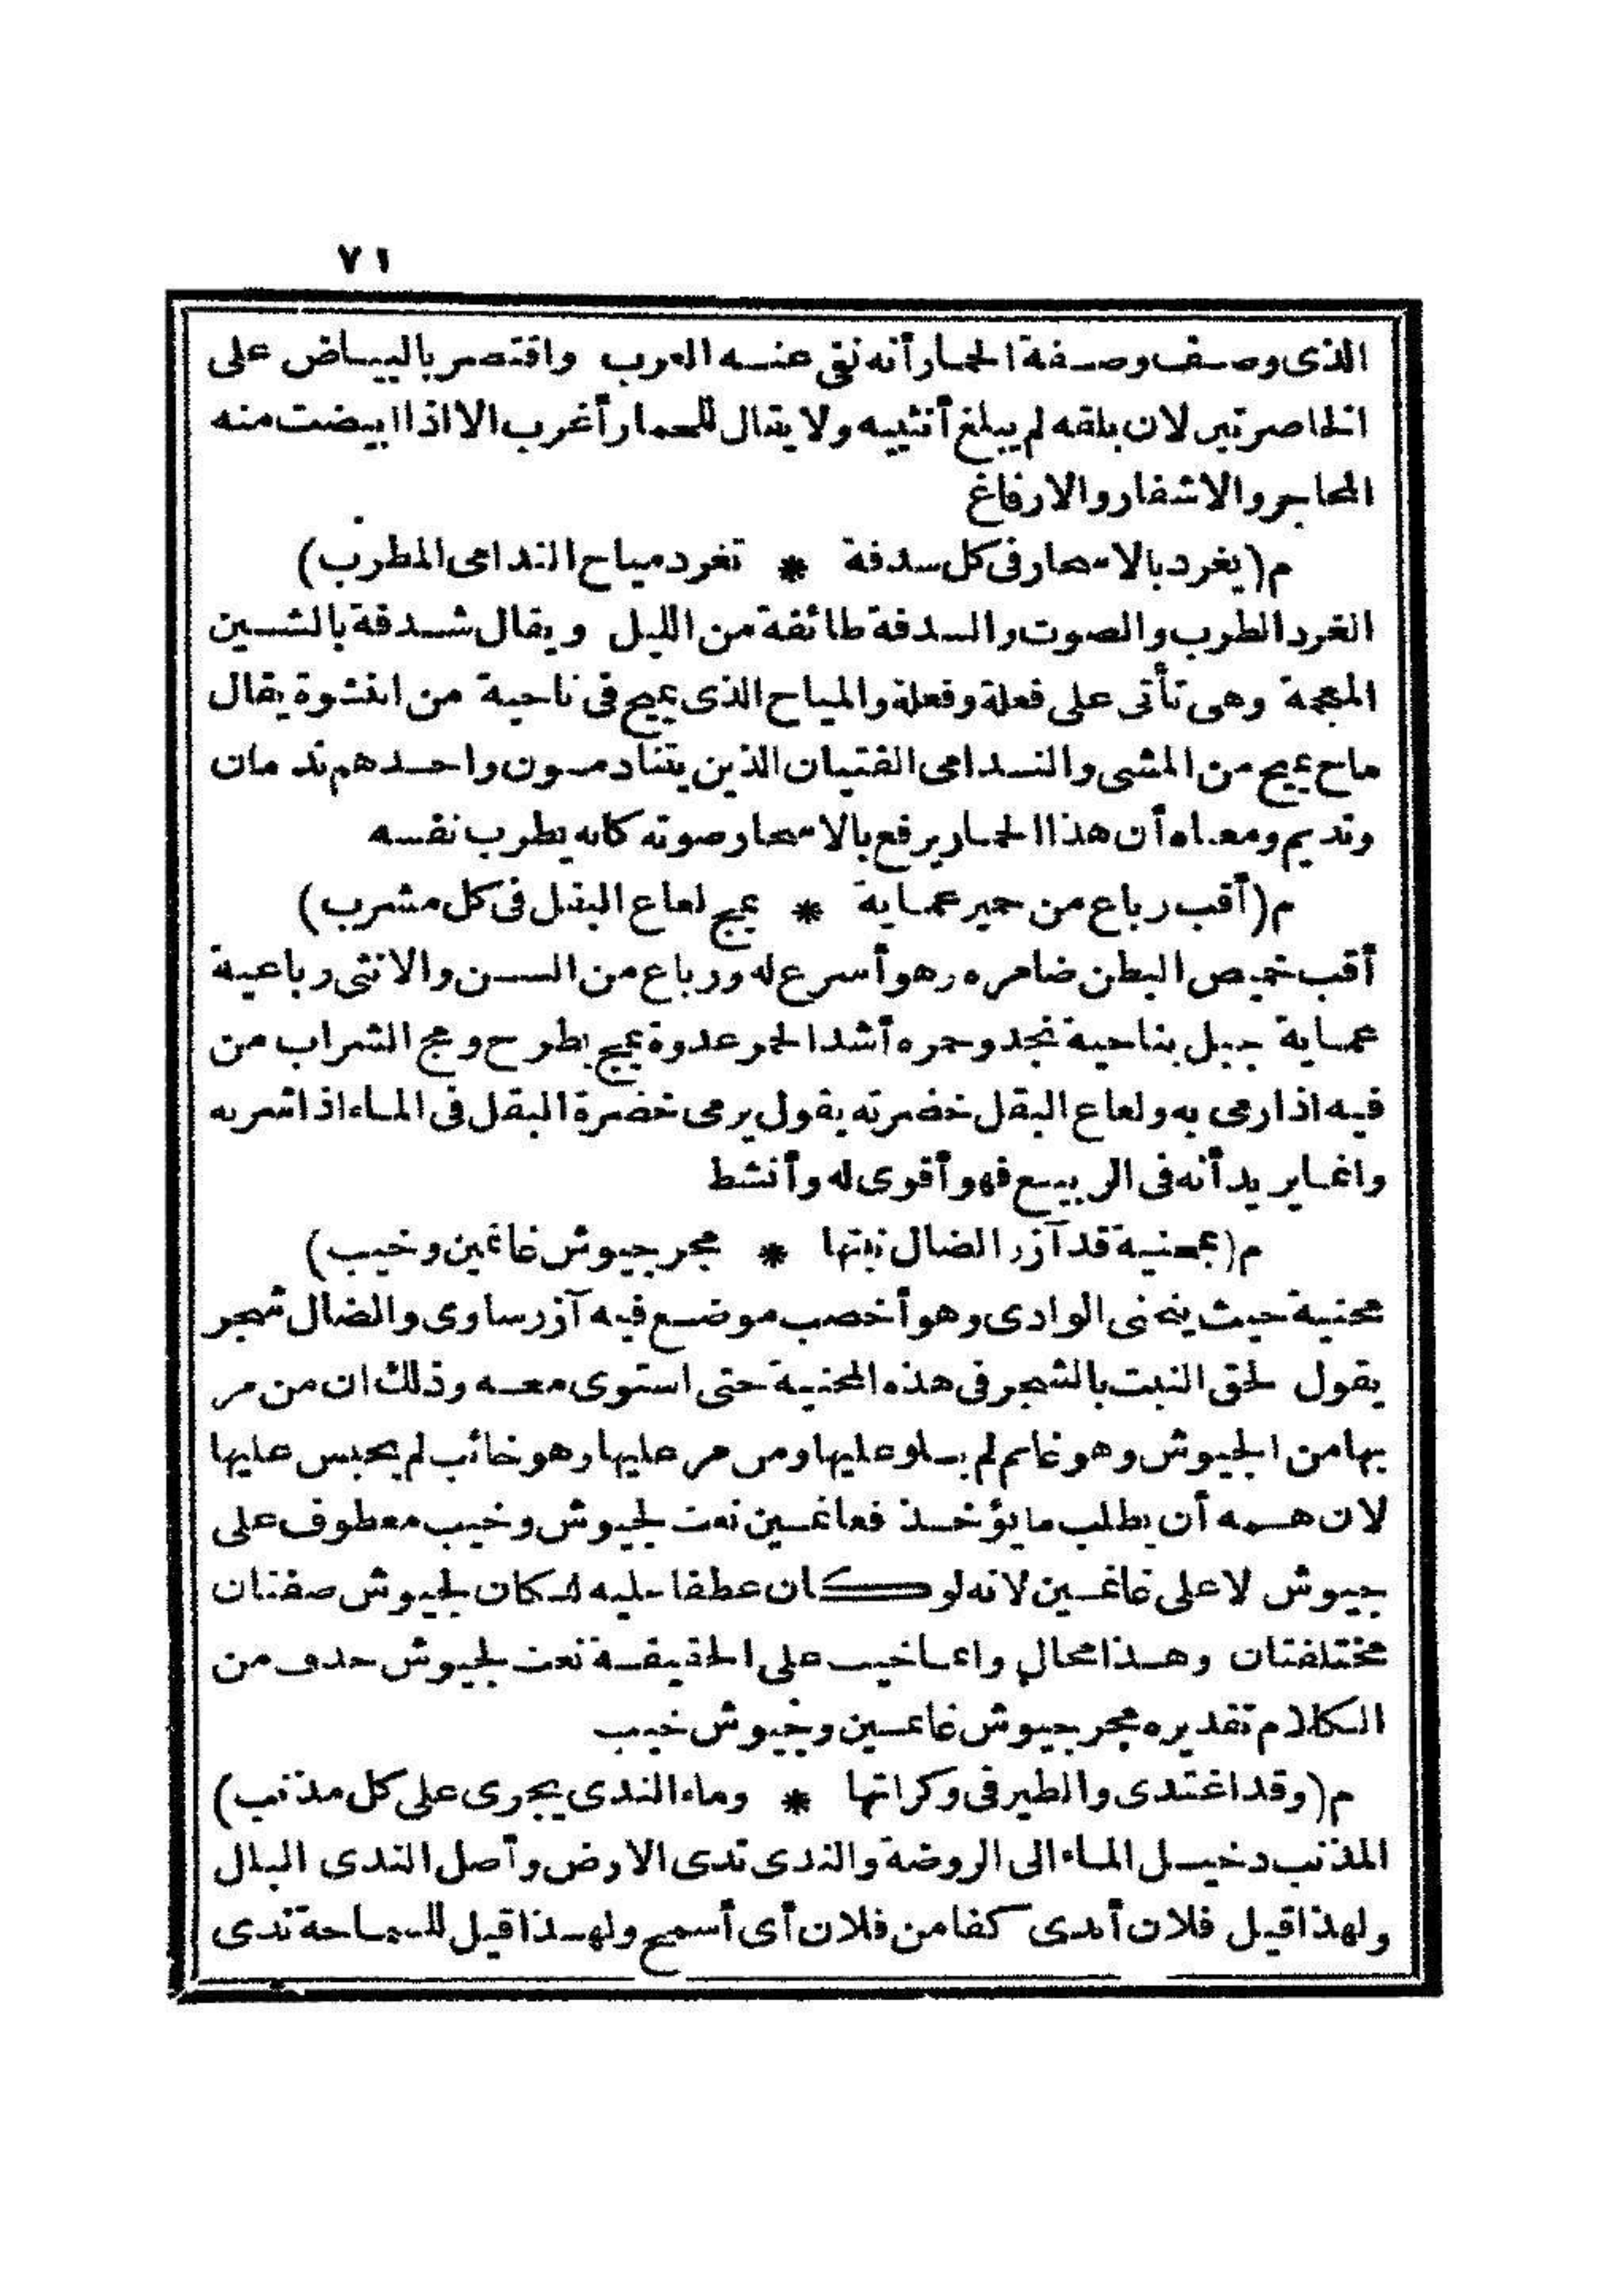 ٧١
الذى وصف وصفة الحمار أنه نفى عنه العرب واقتصر بالبياض على
الخاصرتين لان بلقه لم يبلغ أنثييه ولا يقال للحمار أغرب الا اذا ابيضت منه
المحاجر والاشفار والارفاغ
م (يغرد بالاسحار فى كل سدفة * تغرد مياح الندامى المطرب)
الغرد الطرب والصوت والسدفة طائفة من الليل ويقال شدفة بالشين
المعجمة وهى تأتى على فعلة وفعلة والمياح الذى يميح فى ناحية من النشوة يقال
ماح يميح من المشى والندامى الفتيان الذين يتنادمون واحدهم ندمان
ونديم ومعناه أن هذا الحمار يرفع بالاسحار صوته كانه يطرب نفسه
م (أقب رباع من حمير عماية * يمج لعاع البقل فى كل مشرب)
أقب خميص البطن ضامره وهو أسرع له ورباع من السن والانثى رباعية
عماية جبل بناحية نجد وحمره أشد الحمر عدوة يمج يطرح ومج الشراب من
فيه اذا رمى به ولعاع البقل خضرته يقول يرمى خضرة البقل فى الماء اذا شربه
وانما يريد أنه فى الربيع فهو أقوى له وأنشط
م (بمحنية قد آزر الضال نبتها * مجر جيوش غانمين وخيب)
محنية حيث ينحنى الوادى وهو أخصب موضع فيه آزر ساوى والضال شجر
يقول لحق النبت بالشجر فى هذه المحنية حتى استوى معه وذلك ان من مر
بها من الجيوش وهو غانم لم يلو عليها ومن مر عليها وهو خائب لم يحبس عليها
لان همه أن يطلب ما يؤخذ فغانمين نعت لجيوش وخيب معطوف على
جيوش لا على غانمين لانه لو كان عطفا عليه لكان لجيوش صفتان
مختلفتان وهذا محال وانما خيب على الحقيقة نعت لجيوش حذف من
الكلام تقديره مجر جيوش غانمين وجيوش خيب
م (وقد اغتدى والطير فى وكراتها * وماء الندى يجرى على كل مذنب)
المذنب دخيل الماء الى الروضة والندى ندى الارض وأصل الندى البلل
ولهذا قيل فلان أندى كفا من فلان أى أسمح ولهذا قيل للسماحة ندى